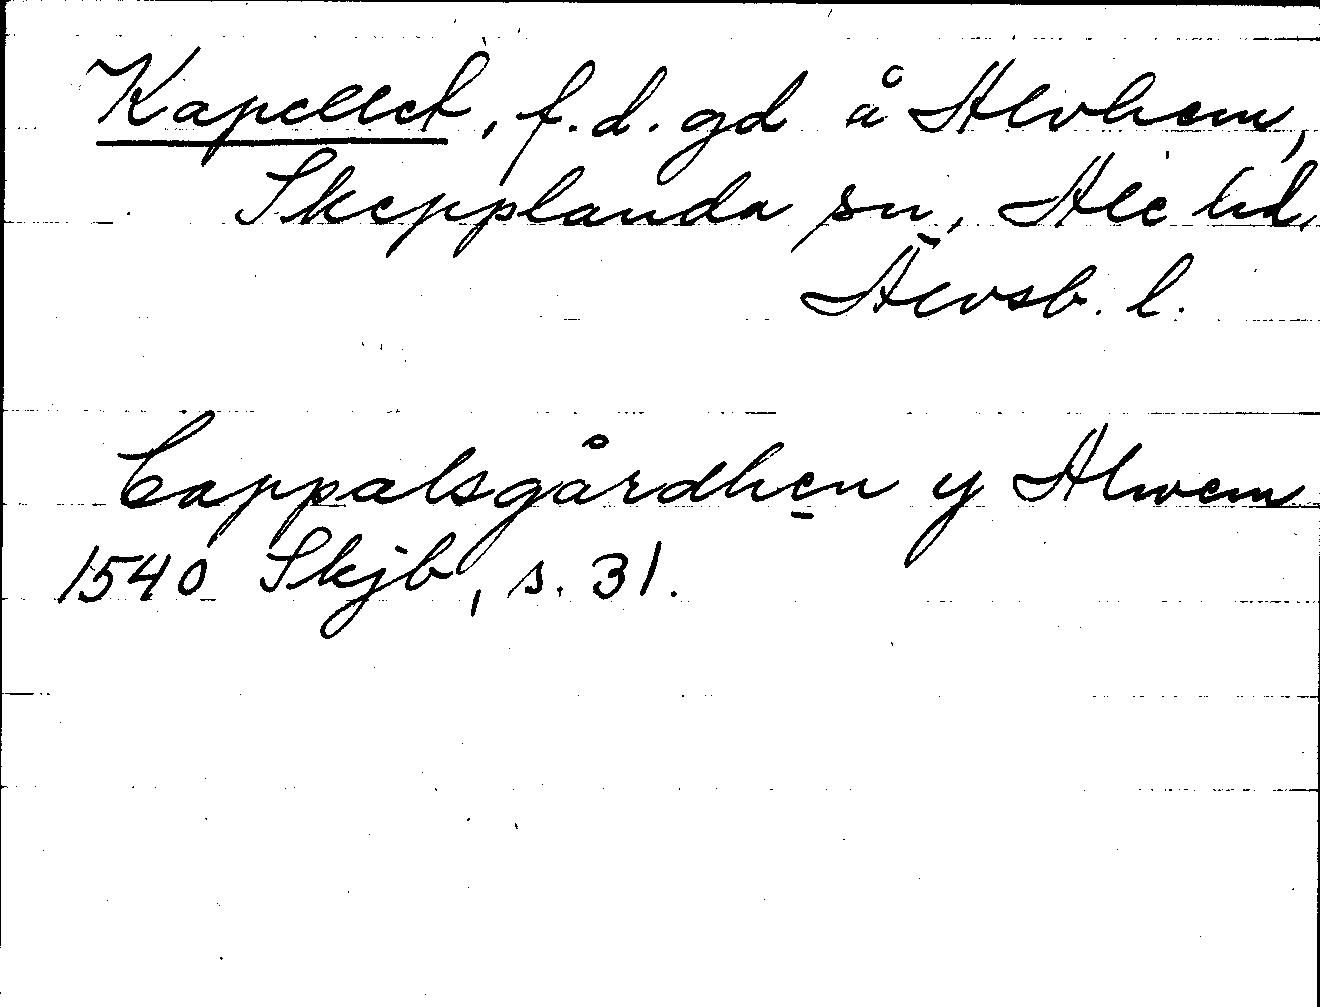 Kapellet, f.d. gd å Alvhem,
Skepplanda sn, Ale hd,
Älvsb. l.
Cappalsgårdhen y Alwem
1540 Skjb, s. 31.